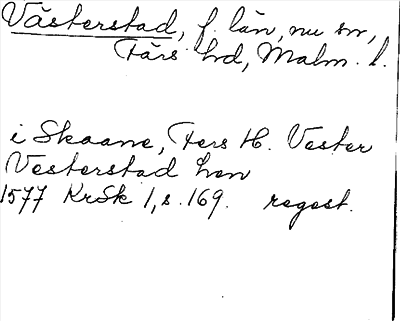 Västerstad, f. län, nu sn,
Färs hd, Malm. l.
i Skaane, Fers H. Vester
Vesterstad Len
1577 KrSk 1, s. 169. regest.